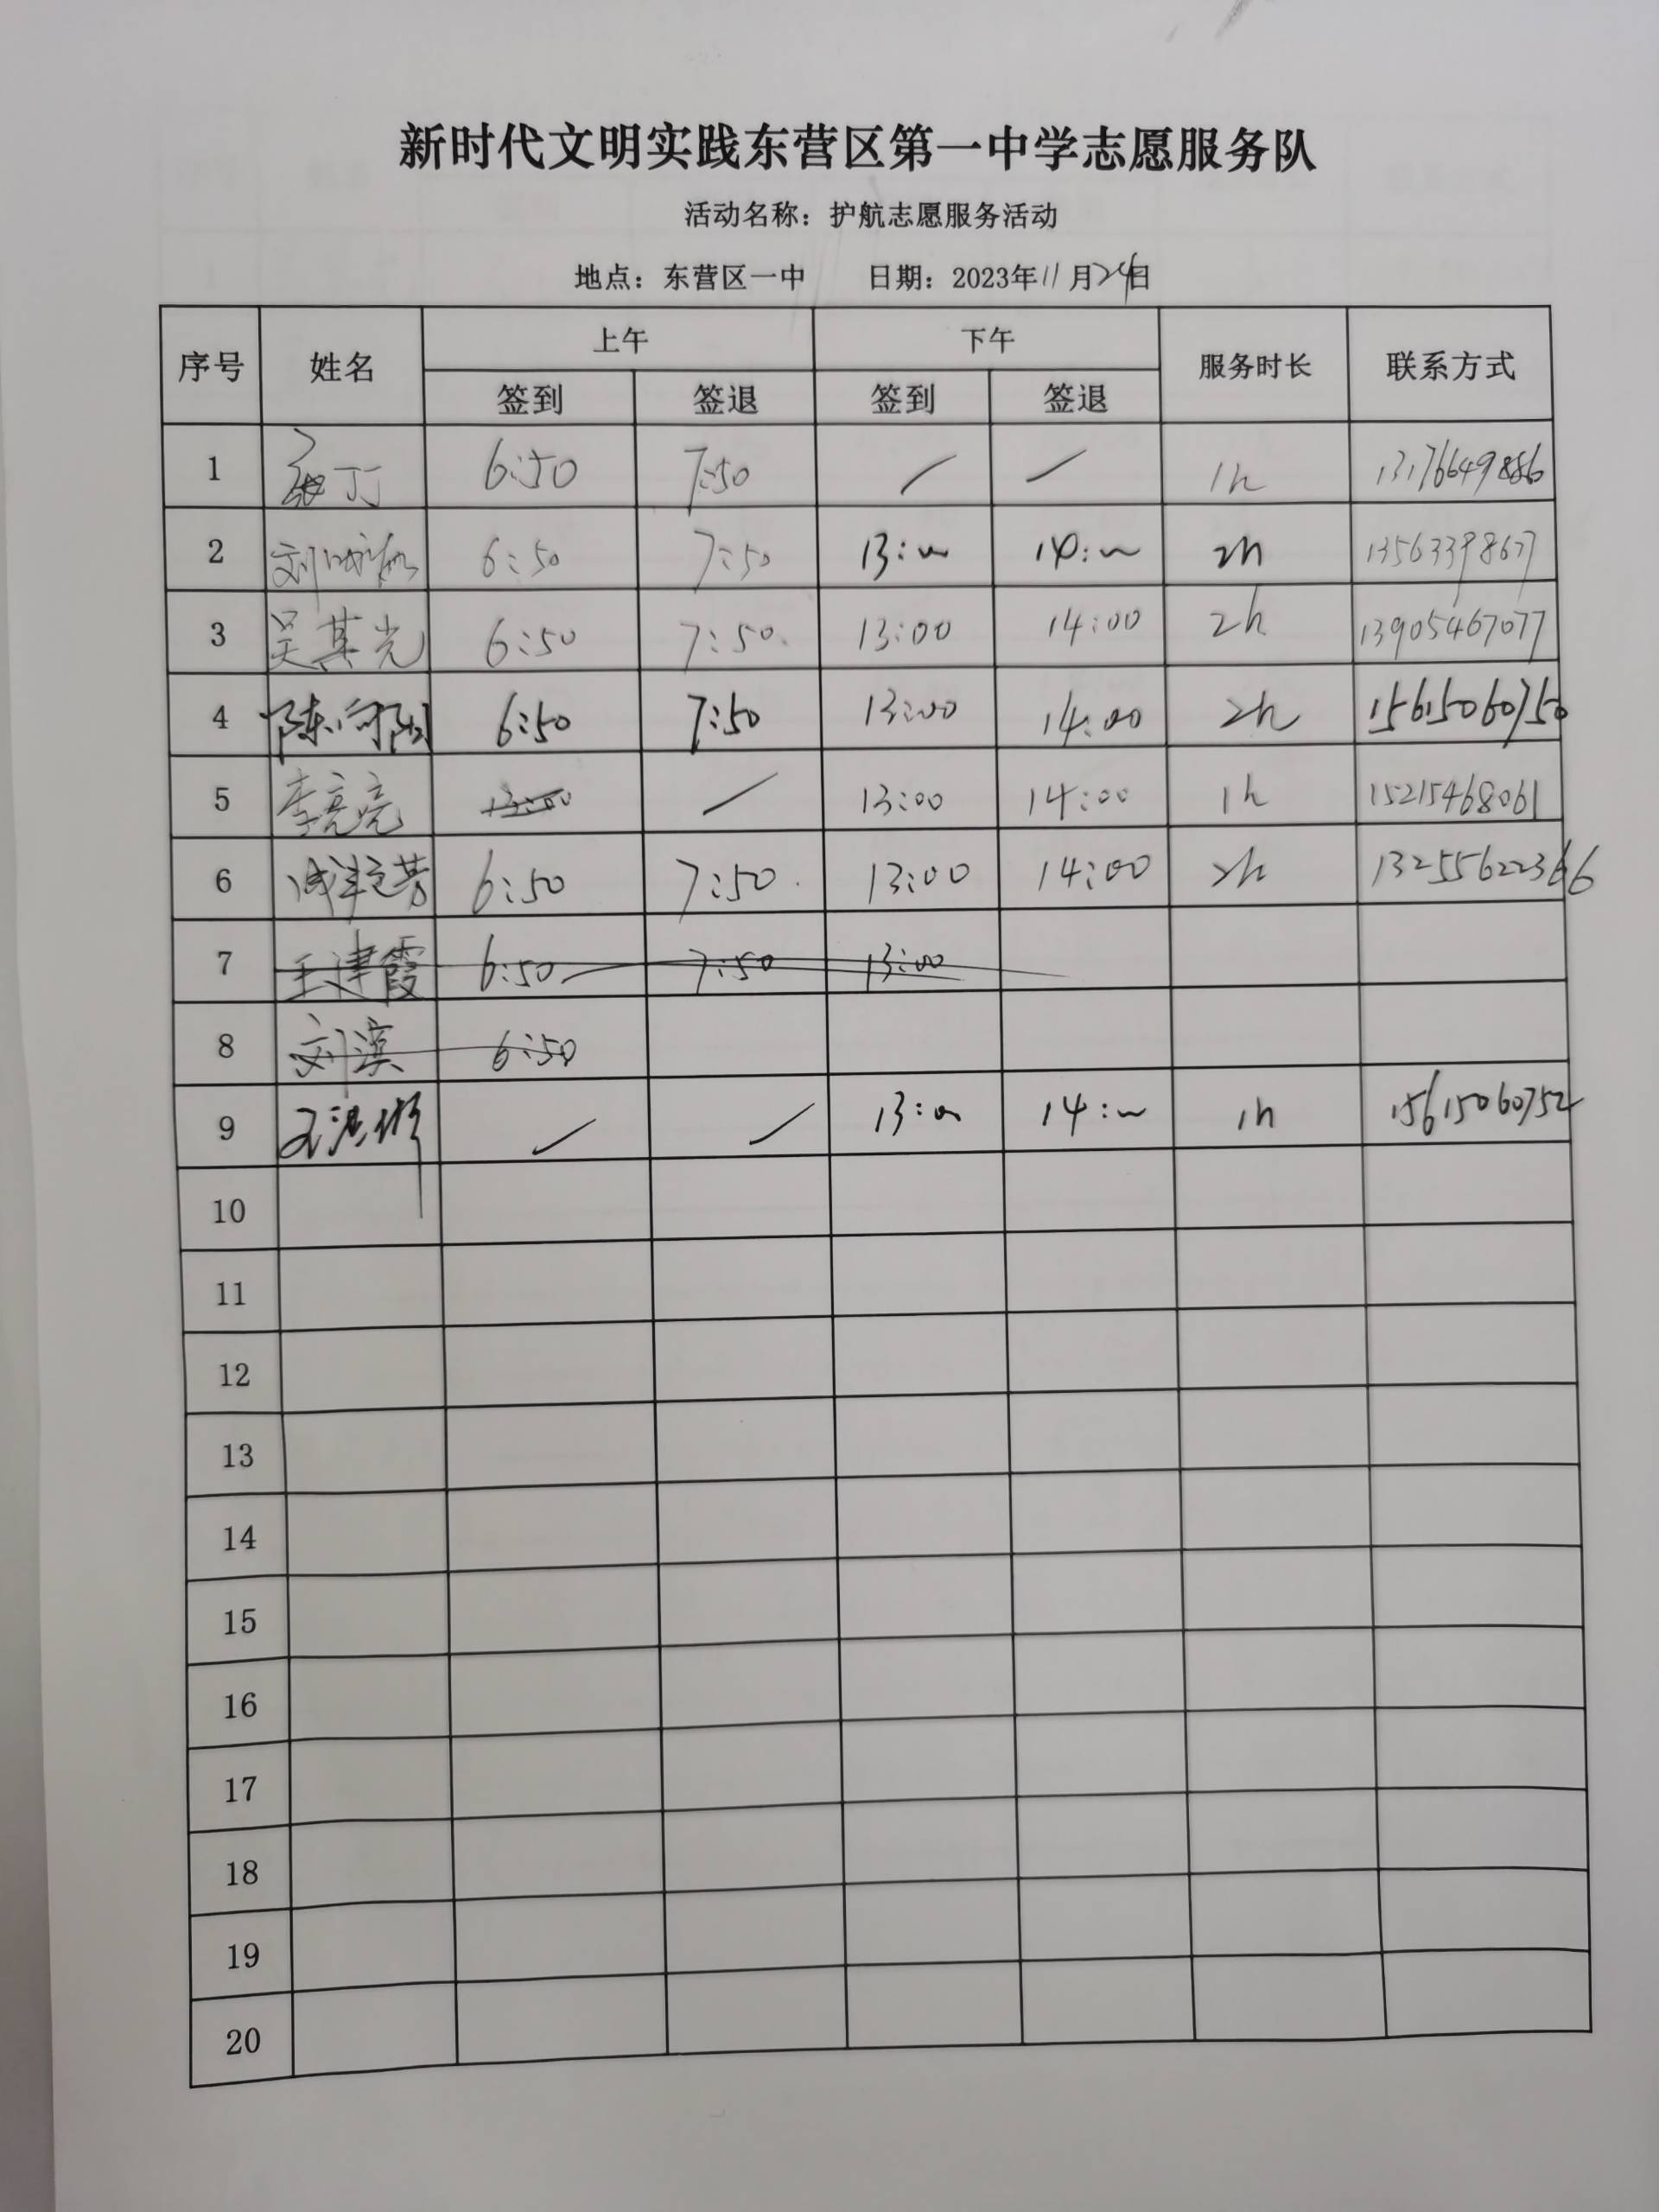 新时代文明实践东营区第一中学志愿服务队
活动名称：护航志愿服务活动
地点：东营区一中 日期：2023年11月24日
序号 姓名 上午 下午 服务时长 联系方式
签到 签退 签到 签退
1 丁丁 6:50 7:50 / / 1h 13176649886
2 刘 6:50 7:50 13:00 14:00 2h 13563398677
3 吴其光 6:50 7:50 13:00 14:00 2h 13905467077
4 陈向阳 6:50 7:50 13:00 14:00 2h 15615060750
5 李亮亮 13:00 / 13:00 14:00 1h 15215468061
6 6:50 7:50 13:00 14:00 2h 13255622366
7 王津霞 6:50 7:50 13:00
8 刘滨 6:50
9 / / 13:00 14:00 1h 15615060752
10
11
12
13
14
15
16
17
18
19
20